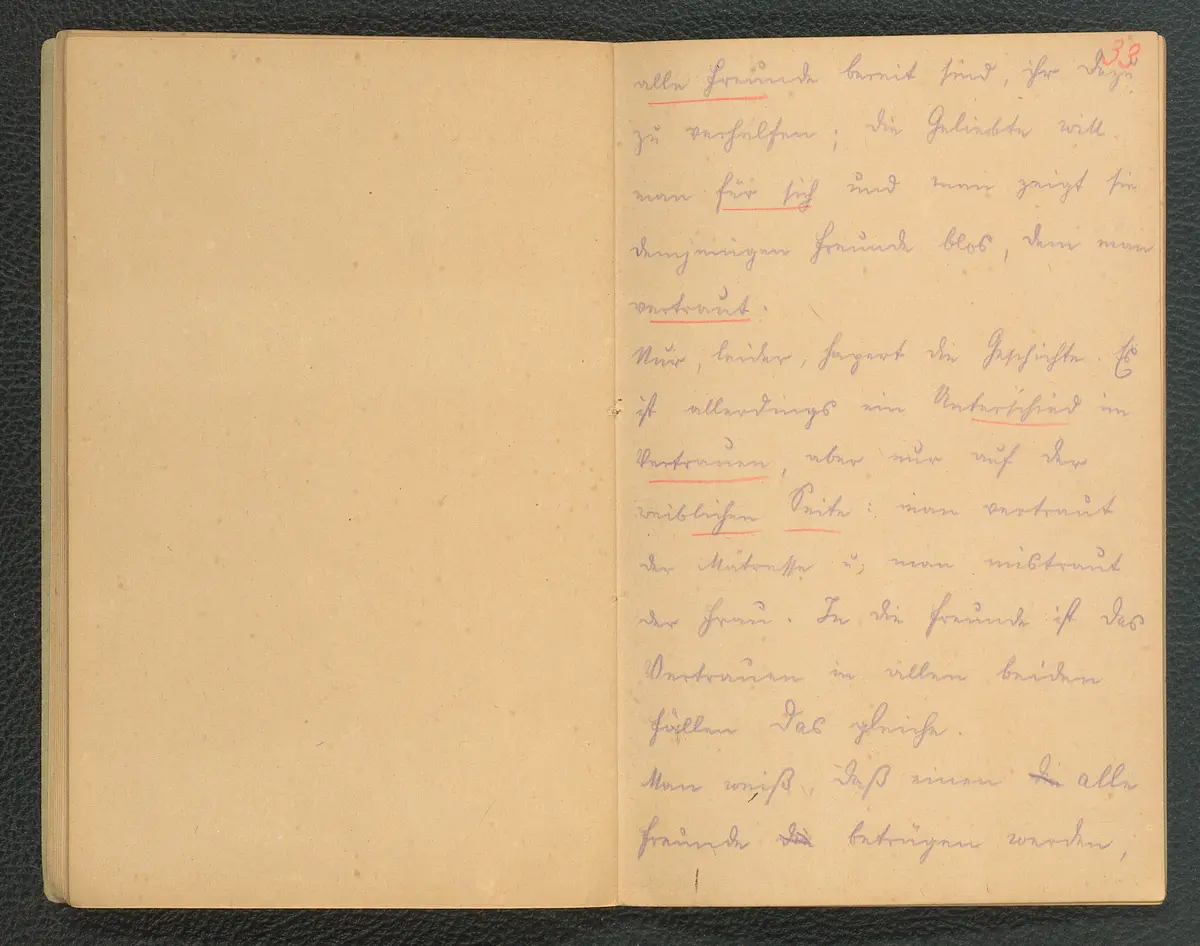 33
alle Freunde bereit sind, ihr dazu
zu verhelfen; die Geliebte will
man für sich und man zeigt sie
demjenigen Freunde blos, dem man
vertraut.
Nur, leider, hapert die Geschichte. Es
ist allerdings ein Unterschied im
Vertrauen, aber nur auf der
weiblichen Seite: man vertraut
der Mätresse u; man mistraut
der Frau. In die Freunde ist das
Vertrauen in allen beiden
Fällen das gleiche.
Man weiß, daß einen die alle
Freunde die betrügen werden,